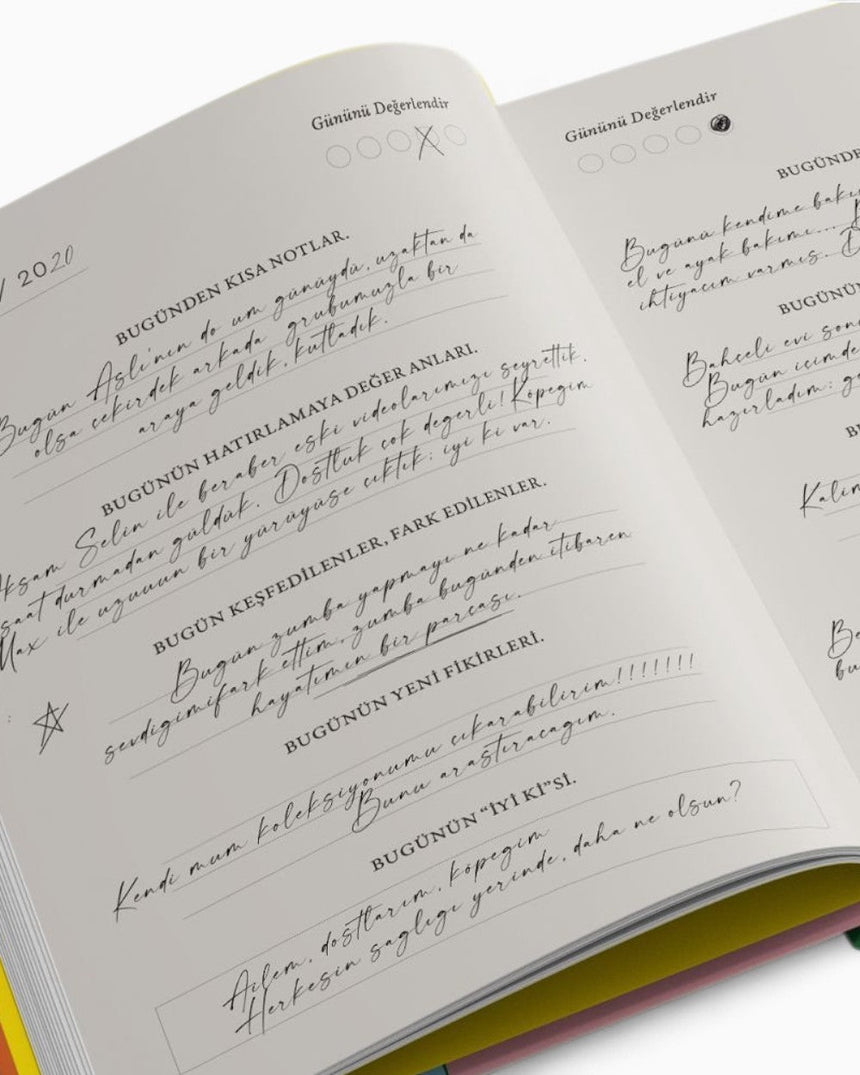 Gününü Değerlendir
/ 2020
BUGÜNDEN KISA NOTLAR.
Bugün Aslı'nın do um günüydü, uzaktan da
olsa çekirdek arkada grubumuzla bir
araya geldik, kutladık.
BUGÜNÜN HATIRLAMAYA DEĞER ANLARI.
Akşam Selin ile beraber eski videolarımızı seyrettik.
saat durmadan güldük. Dostluk çok değerli! Köpeğim
Max ile uzuuun bir yürüyüşe çıktık; iyi ki var.
BUGÜN KEŞFEDİLENLER, FARK EDİLENLER.
Bugün zumba yapmayı ne kadar
sevdiğimifark ettim, zumba bugünden itibaren
hayatımın bir parçası.
BUGÜNÜN YENİ FİKİRLERİ.
Kendi mum koleksiyonumu çıkarabilirim!!!!!!!
Bunu araştıracağım.
BUGÜNÜN "İYİ Kİ"Sİ.
Ailem, dostlarım, köpeğim
Herkesin sağlığı yerinde, daha ne olsun?
Gününü Değerlendir
BUGÜNDE
Bugünü kendime bakı
el ve ayak bakımı...
ihtiyacım varmış.
BUGÜNÜN
Bahçeli evi son
Bugün içimde
hazırladım; ge
Kalın
bu